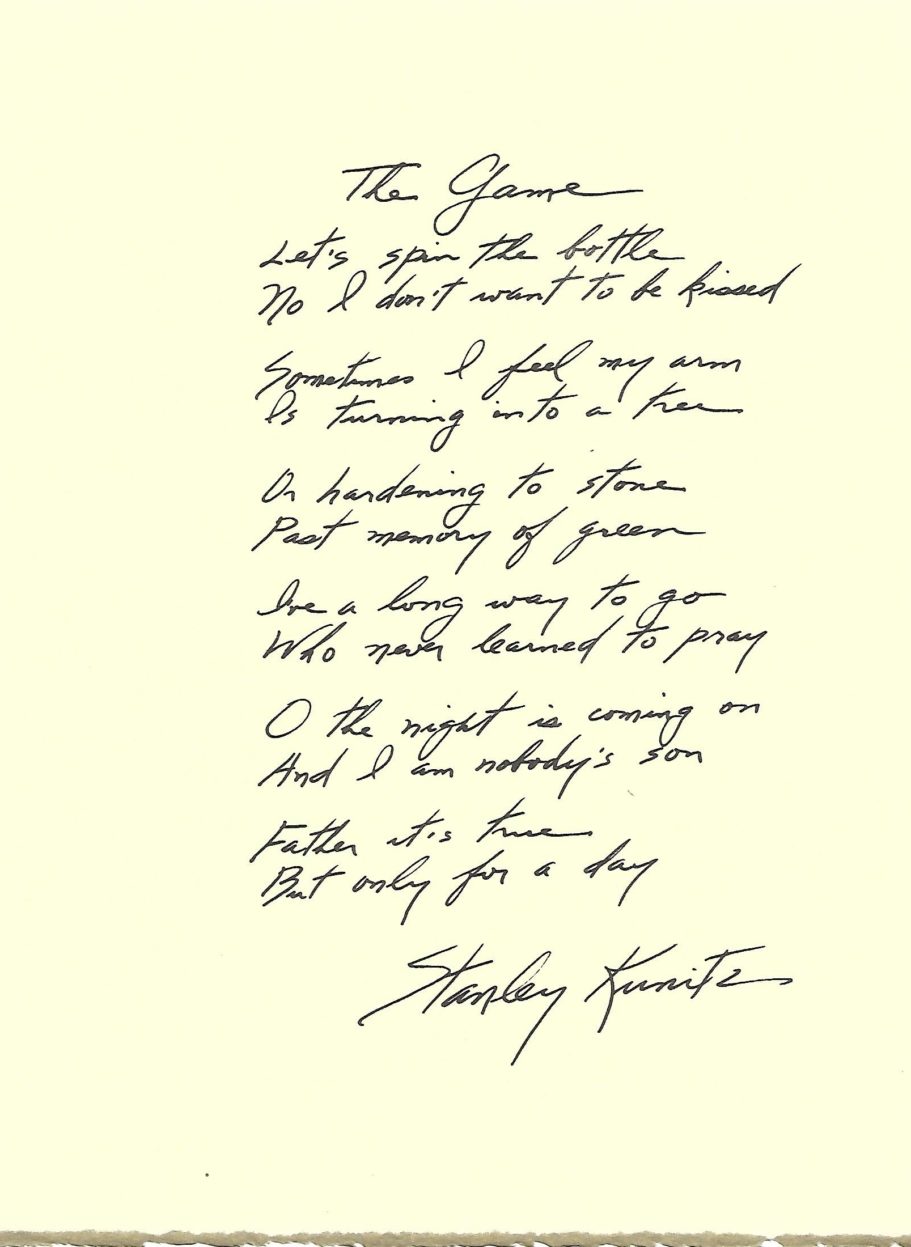 The Game
Let's spin the bottle
No I don't want to be kissed
Sometimes I feel my arm
Is turning into a tree
Or hardening to stone
Past memory of green
I've a long way to go
Who never learned to pray
O the night is coming on
And I am nobody's son
Father it's true
But only for a day
Stanley Kunitz